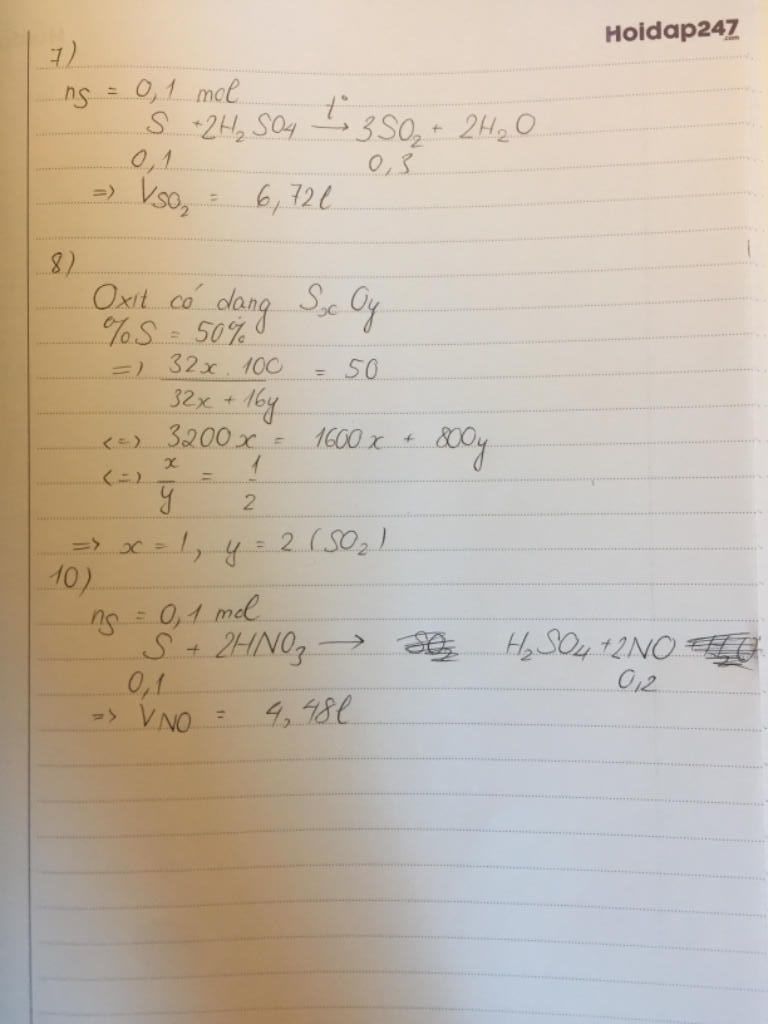 Hoidap247
.com
7)
nS = 0,1 mol
t°
S + 2H₂SO₄ → 3SO₂ + 2H₂O
0,1 0,3
=> VSO₂ = 6,72l
8)
Oxit có dạng SxOy
%S = 50%
=> 32x . 100 / 32x + 16y = 50
<=> 3200x = 1600x + 800y
<=> x/y = 1/2
=> x = 1, y = 2 (SO₂)
10)
nS = 0,1 mol
S + 2HNO₃ → H₂SO₄ + 2NO
0,1 0,2
=> VNO = 4,48l